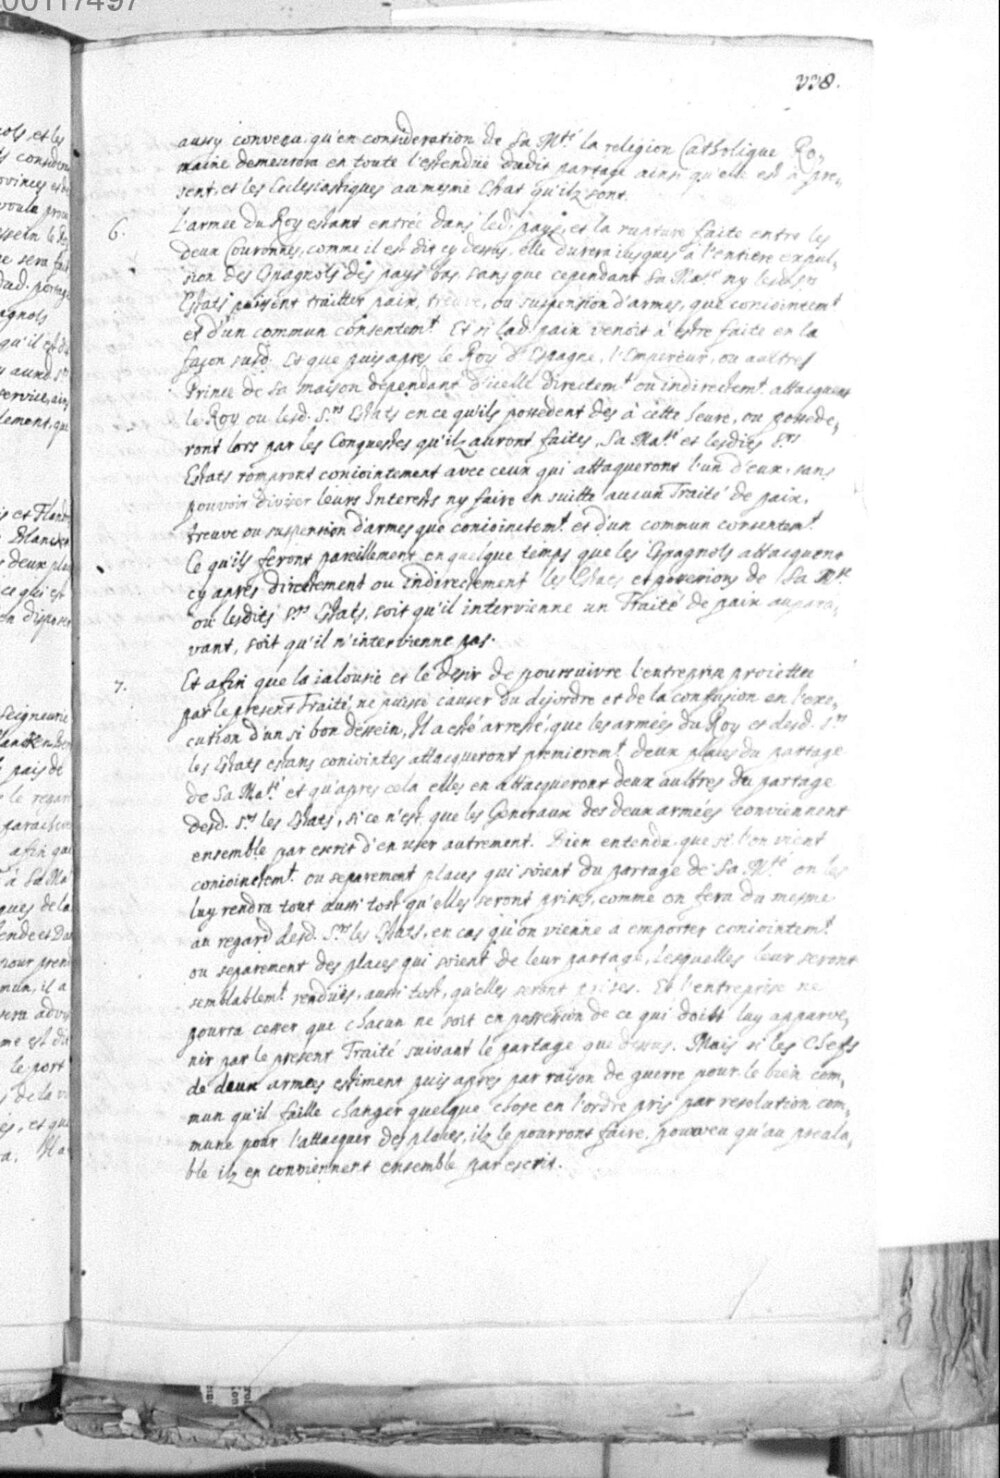 00117497
228.
aussy convenu qu'en consideration de Sa Mté la religion Catholique Ro,
maine demeurera en toute l'estendue dudit partage ainsi qu'elle est à pre,
sent, et les Ecclesiastiques au mesme Estat qu'ilz sont.
6. L'armee du Roy estant entrée dans led. pays, et la rupture faite entre les
deux Couronnes, comme il est dit cy dessus, elle durera iusques à l'entiere expul,
sion des Espagnols des pays bas, sans que cependant Sa Maté ny lesd. Srs
Estats puissent traitter paix, treuve, ou suspension d'armes, que conioinctemt
et d'un commun consentemt. Et si lad. paix venoit à estre faite en la
façon susd. Et que puis apres le Roy d'Espagne, l'Empereur, ou aultres
Prince de sa maison dependant d'icelle directemt ou indirectemt attacquent
le Roy ou lesd. Srs Estats en ce qu'ils possedent des à cette heure, ou possede,
ront lors par les Conquestes qu'ilz auront faites, Sa Maté et lesdits Srs
Estats rompront conioinctement avec ceux qui attaqueront l'un d'eux, sans
pouvoir diviser leurs Interests ny faire en suitte aucun Traité de paix,
treuve ou suspension d'armes que conioinctemt et d'un commun consentemt.
Ce qu'ils feront pareillement en quelque temps que les Espagnols attacquent
cy apres directement ou indirectement les Estats et possessions de Sa Mté
ou lesdits Srs Estats, soit qu'il intervienne un Traité de paix aupara,
vant, soit qu'il n'intervienne pas.
7. Et afin que la ialousie et le desir de poursuivre l'entreprise proiettée
par le present Traité ne puisse causer du desordre et de la confusion en l'exe,
cution d'un si bon dessein, Il a esté arresté, que les armées du Roy et desd. Srs
les Estats estans conioinctes attacqueront premieremt deux places du partage
de Sa Maté et qu'apres cela elles en attacqueront deux aultres du partage
desd. Srs les Estats, si ce n'est que les Generaux des deux armées conviennent
ensemble par escrit d'en user autrement. Bien entendu, que si l'on vient
conioinctemt ou separement places qui soient du partage de Sa Mté on les
luy rendra tout aussi tost qu'elles seront prises, comme on fera du mesme
au regard desd. Srs les Estats, en cas qu'on vienne a emporter conioinctemt
ou separement des places qui soient de leur partage, lesquelles leur seront
semblablemt rendues, aussi tost, qu'elles seront prises. Et l'entreprise ne
pourra cesser que chacun ne soit en possession de ce qui doibt luy apparte,
nir par le present Traité suivant le partage que dessus. Mais si les Chefs
de deux armees estiment puis apres par raison de guerre pour le bien com,
mun qu'il faille changer quelque chose en l'ordre pris par resolution com,
mune pour l'attacquer des places, ilz le pourront faire, pourveu qu'au preala,
ble ilz en conviennent ensemble par escrit.